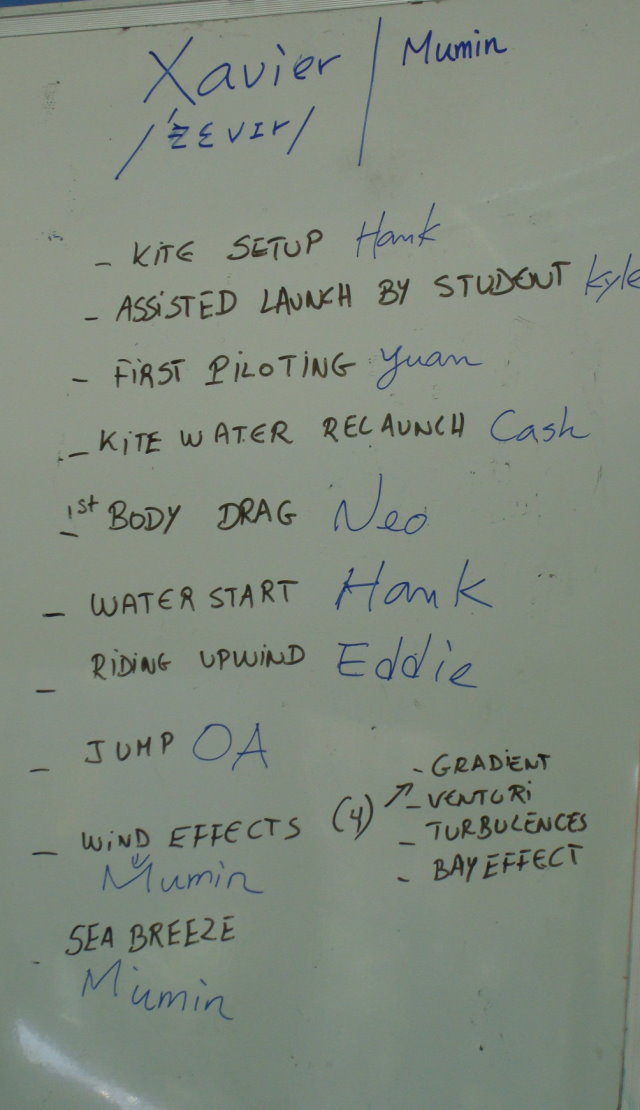 Xavier / Mumin
/ZEVIR/
- KITE SETUP Hank
- ASSISTED LAUNCH BY STUDENT Kyle
- FIRST PILOTING Yuan
- KITE WATER RELAUNCH Cash
- 1st BODY DRAG Neo
- WATER START Hank
- RIDING UPWIND Eddie
- JUMP OA
- WIND EFFECTS (4) ↗ - GRADIENT
- VENTURI
- TURBULENCES
- BAY EFFECT
Mumin
- SEA BREEZE
Mumin